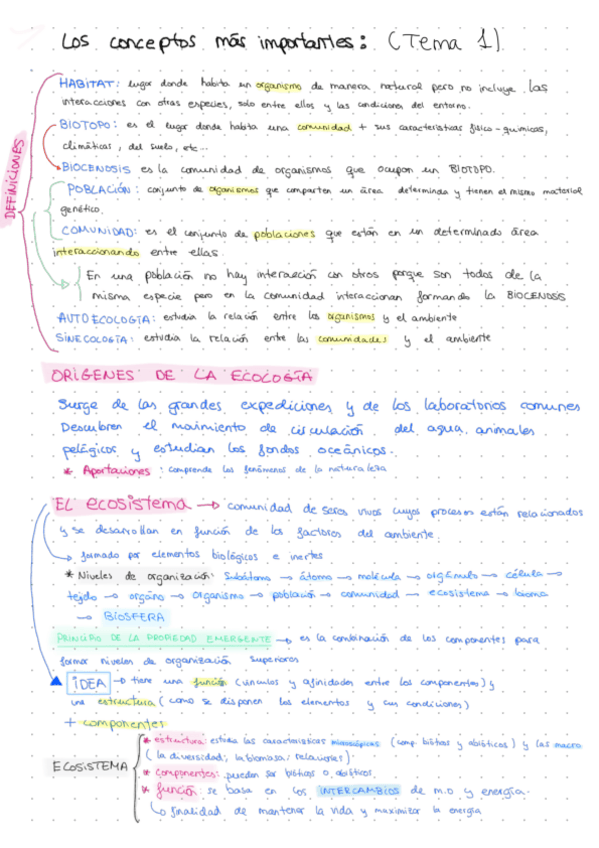 Los conceptos más importantes: (Tema 1)
DEFINICIONES
HÁBITAT: lugar donde habita un organismo de manera natural pero no incluye las
interacciones con otras especies, solo entre ellos y las condiciones del entorno.
BIOTOPO: es el lugar donde habita una comunidad + sus características físico-químicas,
climáticas, del suelo, etc...
BIOCENOSIS es la comunidad de organismos que ocupan un BIOTOPO.
POBLACIÓN: conjunto de organismos que comparten un área determinada y tienen el mismo material
genético.
COMUNIDAD: es el conjunto de poblaciones que están en un determinado área
interaccionando entre ellas.
En una población no hay interacción con otros porque son todos de la
misma especie pero en la comunidad interaccionan formando la BIOCENOSIS
AUTOECOLOGÍA: estudia la relación entre los organismos y el ambiente
SINECOLOGÍA: estudia la relación entre las comunidades y el ambiente
ORÍGENES DE LA ECOLOGÍA
Surge de las grandes expediciones y de los laboratorios comunes
Descubren el movimiento de circulación del agua, animales
pelágicos y estudian los fondos oceánicos.
* Aportaciones: comprende los fenómenos de la naturaleza
EL ecosistema → comunidad de seres vivos cuyos procesos están relacionados
y se desarrollan en función de los factores del ambiente.
formado por elementos biológicos e inertes
* Niveles de organización: Subátomo → átomo → molécula → orgánulo → célula →
tejido → órgano → organismo → población → comunidad → ecosistema → bioma
→ BIOSFERA
PRINCIPIO DE LA PROPIEDAD EMERGENTE → es la combinación de los componentes para
formar niveles de organización superiores
IDEA → tiene una función (vínculos y afinidades entre los componentes) y
una estructura (como se disponen los elementos y sus condiciones)
+ componentes
* estructura: estudia las características microscópicas (comp. bióticos y abióticos) y las macro
(la diversidad, la biomasa, relaciones).
ECOSISTEMA
* componentes: pueden ser bióticos o abióticos.
* función: se basa en los INTERCAMBIOS de m.o y energía.
↳ finalidad de mantener la vida y maximizar la energía